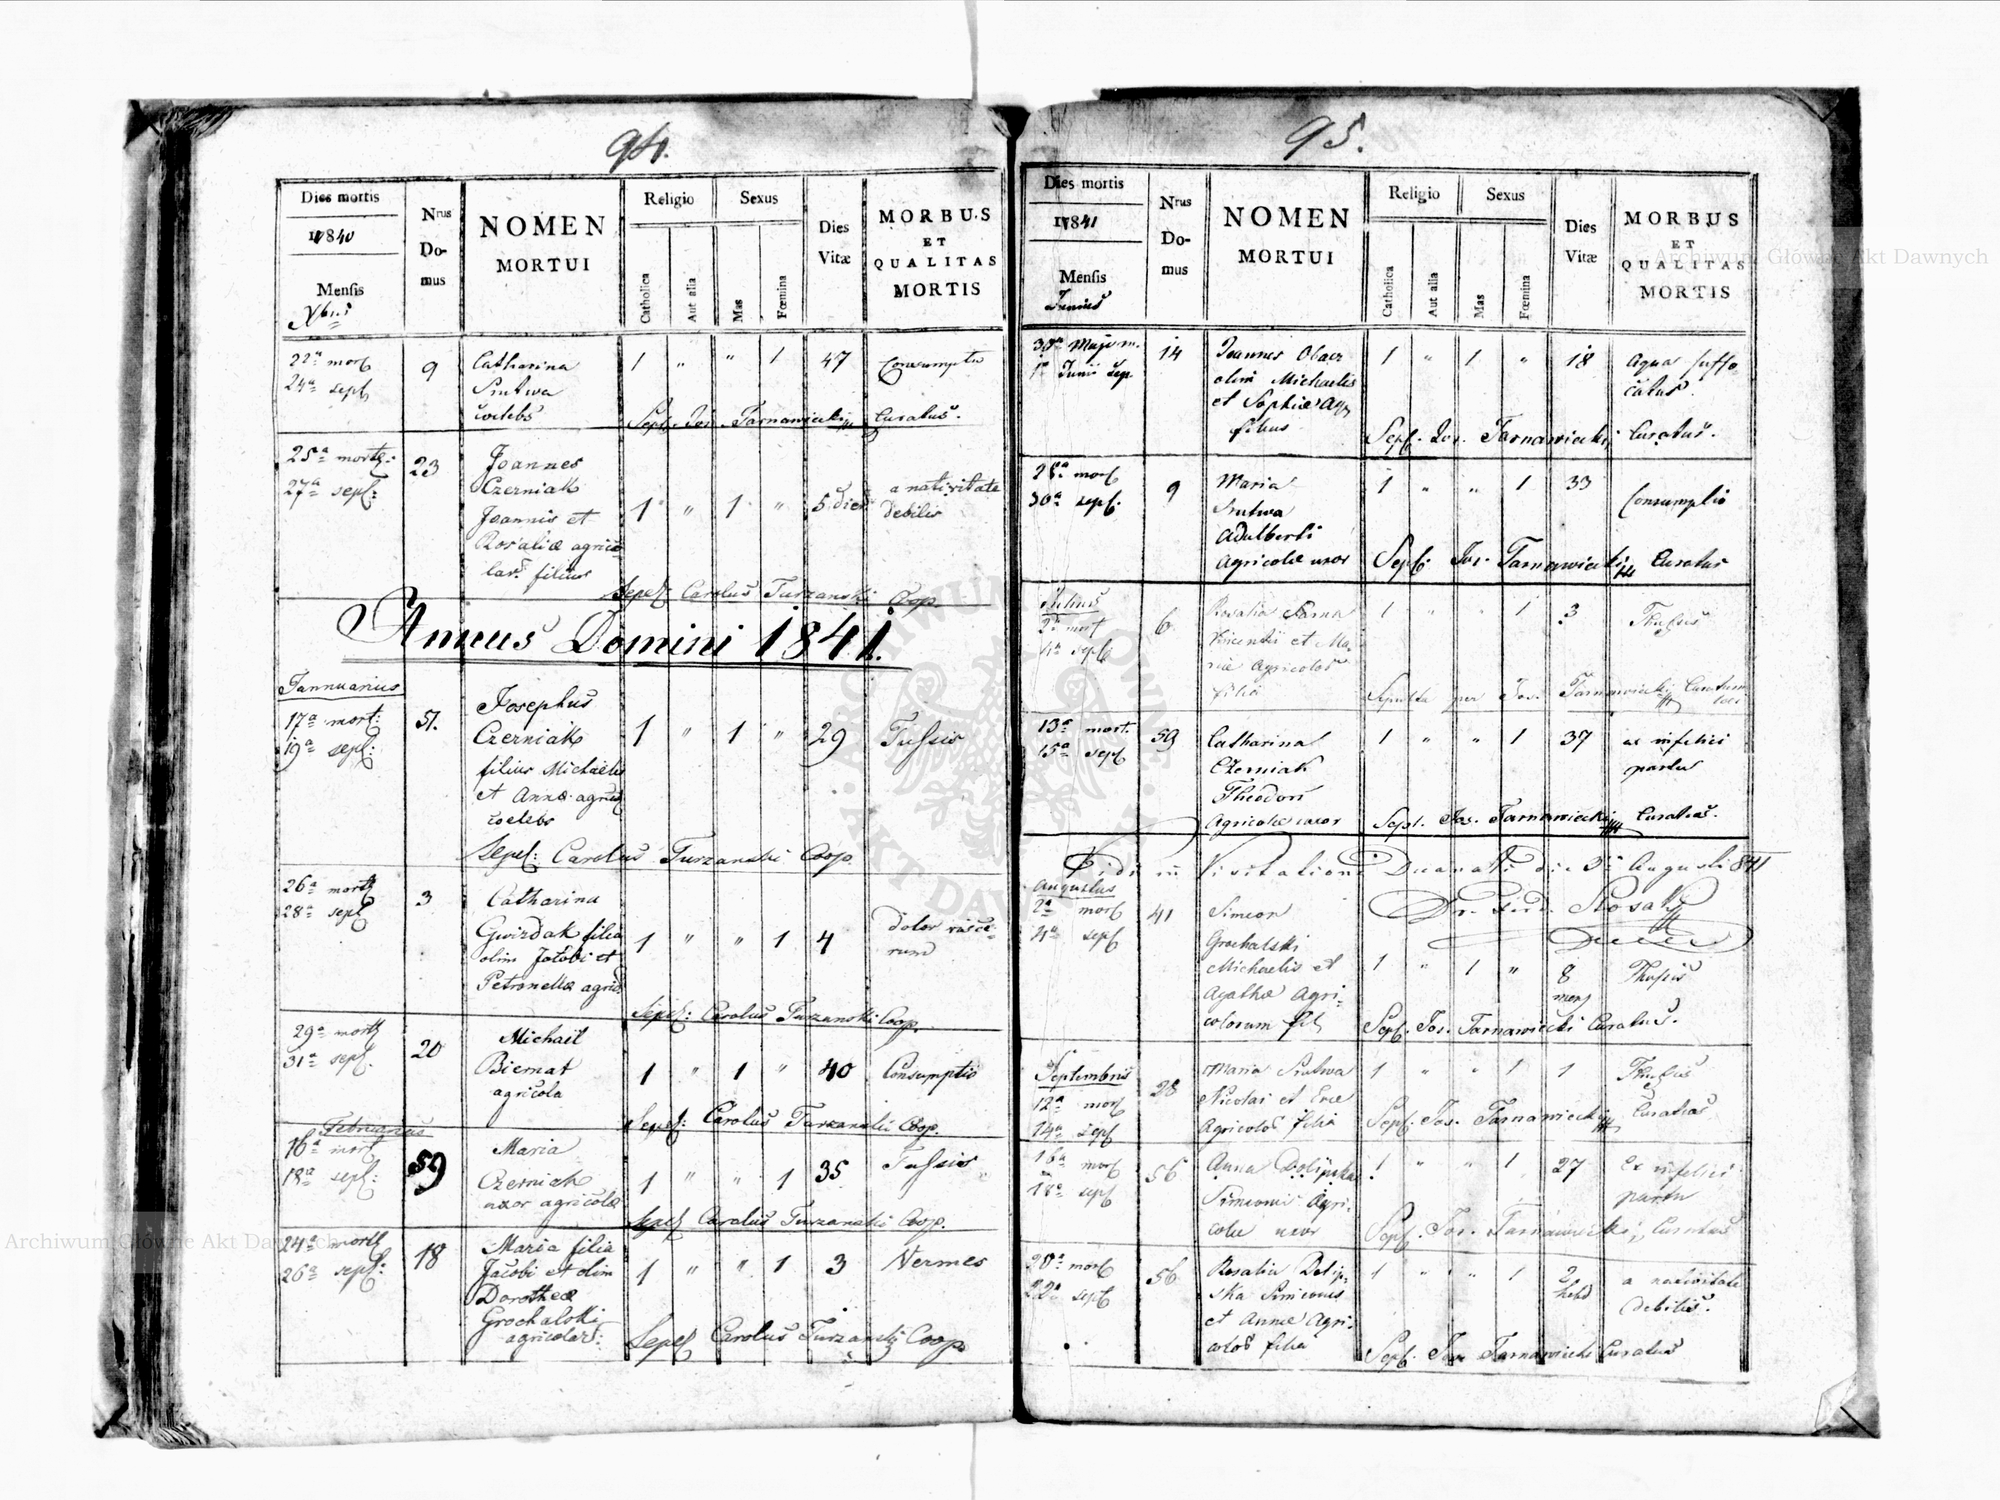 94.
Dies mortis
1840
Mensis
Xbris
Nrus
Do-
mus
NOMEN
MORTUI
Religio
Catholica
Aut alia
Sexus
Mas
Fœmina
Dies
Vitæ
MORBUS
ET
QUALITAS
MORTIS
22a mort
24a sepl
9
Catharina
Srutwa
coelebs
1 " " 1 47 Consumptio
Sepl. Jos. Tarnawiecki Curatus.
25a mort:
27a sepl:
23
Joannes
Czerniak
Joannis et
Rosaliæ agrico
lar. filius
1 " 1 " 5 dies
a nativitate
debilis
Sepel: Carolus Turzanski Coop.
Annus Domini 1841.
Jannuarius
17a mort:
19a sepl:
51.
Josephus
Czerniak
filius Michaelis
et Annæ agric
coelebs
1 " 1 " 29 Tussis
Sepel: Carolus Turzanski Coop.
26a mort
28a sepl
3
Catharina
Gwizdak filia
olim Jacobi et
Petronellæ agric
1 " " 1 4
dolor visce-
rum
Sepel: Carolus Turzanski Coop.
29a mort
31a sepl.
20
Michael
Biernat
agricola
1 " 1 " 40 Consumptio
Sepel: Carolus Turzanski Coop.
Februarius
16a mort
18a sepl:
59
Maria
Czerniak
uxor agricolæ
1 " " 1 35 Tussis
Sepel Carolus Turzanski Coop.
24a mort
26a sepl:
18
Maria filia
Jacobi et olim
Dorotheæ
Grochalski
agricolar:
1 " " 1 3 Vermes
Sepel Carolus Turzanski Coop.
95.
Dies mortis
1841
Mensis
Junius
Nrus
Do-
mus
NOMEN
MORTUI
Religio
Catholica
Aut alia
Sexus
Mas
Fœmina
Dies
Vitæ
MORBUS
ET
QUALITAS
MORTIS
30a Maji m.
1a Junii sep.
14
Joannes
olim Michaelis
et Sophiæ Agr
filius
1 " 1 " 18
Aqua suffo
catus.
Sepl. Jos. Tarnawiecki Curatus.
28a mort
30a sepl.
9
Maria
Srutwa
Adalberti
Agricolæ uxor
1 " " 1 33 Consumptio
Sepl. Jos. Tarnawiecki Curatus
Julius
2a mort
4a sepl
6
Rosalia Sarna
Vincentii et Ma-
riæ Agricolar
filia
1 " " 1 3 Thussis
Sepulta per Jos. Tarnawiecki Curatum
loci
13a mort.
15a sepl
59
Catharina
Czerniak
Theodori
Agricolæ uxor
1 " " 1 37
ex infelici
partu
Sepl. Jos. Tarnawiecki Curatus.
Vidi in Visitatione Decanali die 3a Augusti 841
Augustus
2a mort
4a sepl
41
Simeon
Grochalski
Michaelis et
Agathæ Agri-
colarum fil
1 " 1 "
8
mens
Thussis
Sepl. Jos. Tarnawiecki Curatus.
Septembris
12a mort
14a sepl
28
Maria Srutwa
Nicolai et Evæ
Agricolar filia
1 " " 1 1 Thussis
Sepl. Jos. Tarnawiecki Curatus
16a mort
18a sepl
56
Anna Dolipska
Simeonis Agri-
colæ uxor
1 " " 1 27
ex infelici
partu
Sepl. Jos. Tarnawiecki Curatus
20a mort
22a sepl
56
Rosalia Dolip-
ska Simeonis
et Annæ Agri-
colar filia
1 " " 1
2
hebd
a nativitate
debilis.
Sepl. Jos. Tarnawiecki Curatus
Archiwum Główne Akt Dawnych
Archiwum Główne Akt Dawnych